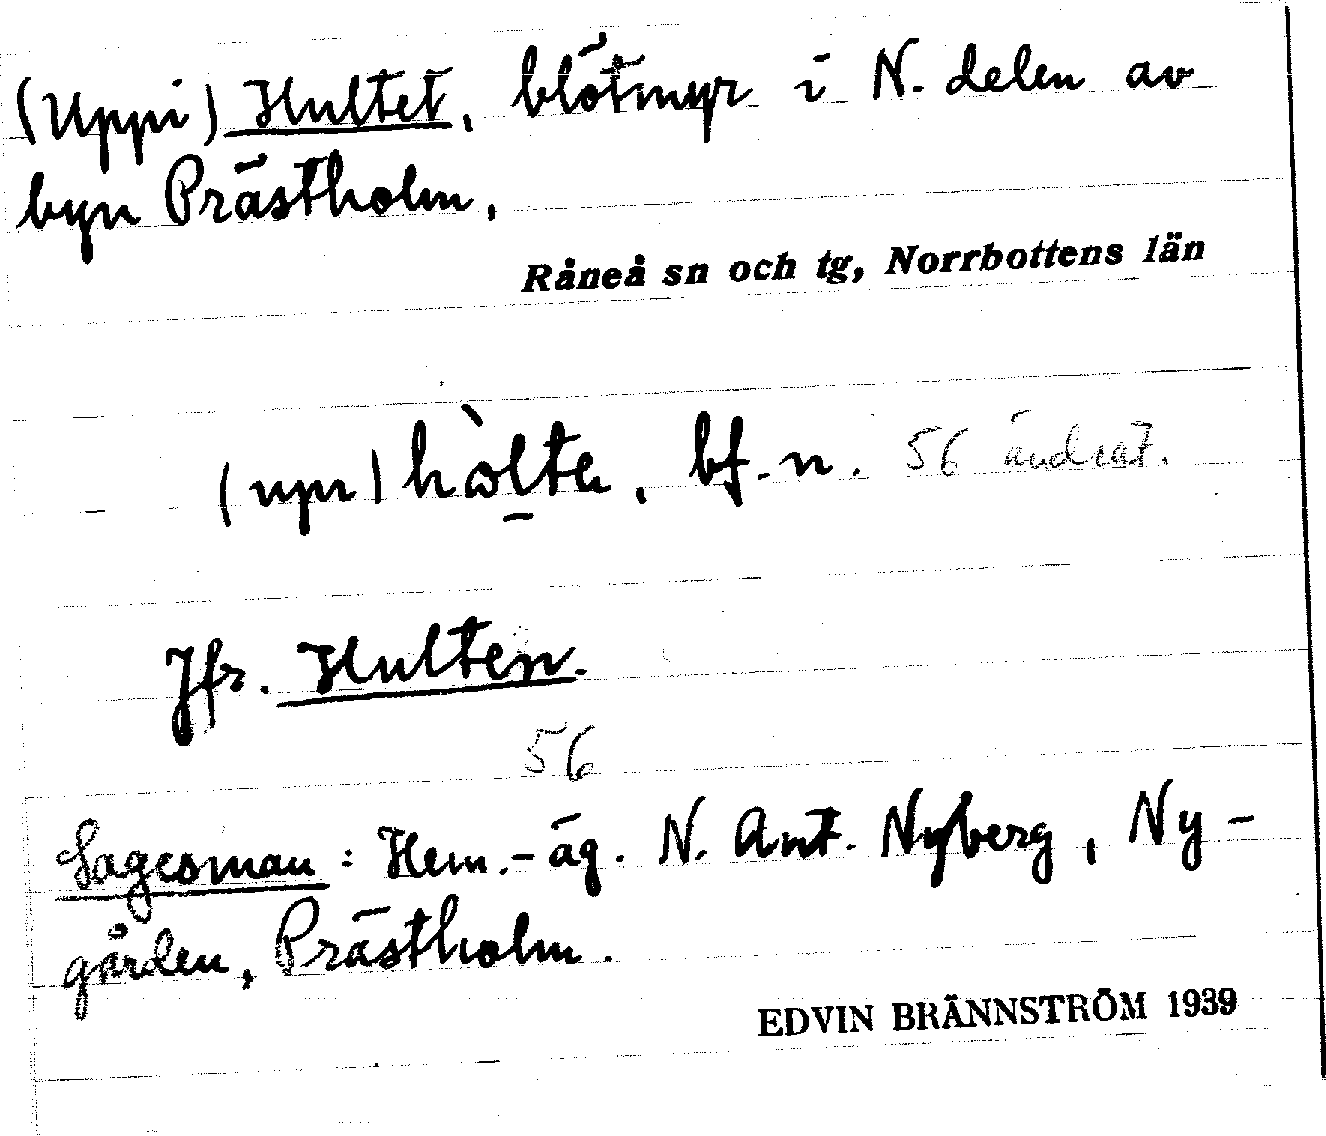 (Uppi) Hultet, blötmyr i N. delen av
byn Prästholm,
Råneå sn och tg, Norrbottens län
(upı) hòlte, bf. n. 56 ändrat.
Jfr. Hulten.
56
Sagesman: Hem.-äg. N. Ant. Nyberg, Ny-
gården, Prästholm.
EDVIN BRÄNNSTRÖM 1939